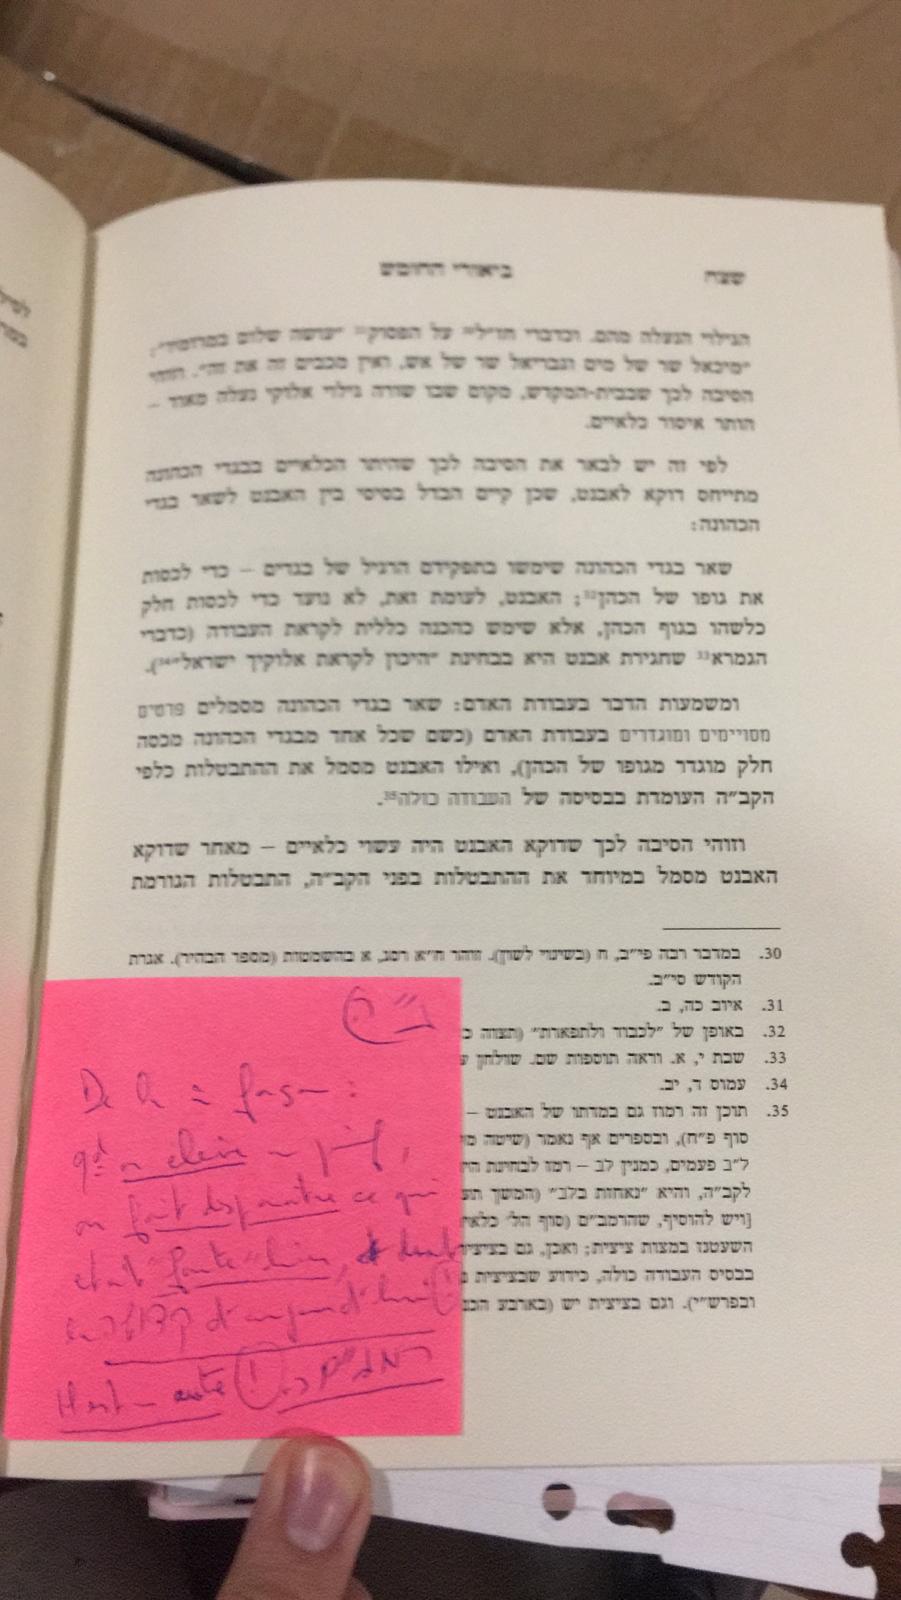 שצח
ביאורי החומש
הגילוי הנעלה מהם. וכדברי חז״ל³⁰ על הפסוק³¹ ״עושה שלום במרומיו״:
״מיכאל שר של מים וגבריאל שר של אש, ואין מכבים זה את זה״. וזוהי
הסיבה לכך שבבית-המקדש, מקום שבו שורה גילוי אלוקי נעלה מאוד –
הותר איסור כלאיים.
לפי זה יש לבאר את הסיבה לכך שהיתר הכלאיים בבגדי הכהונה
מתייחס דוקא לאבנט, שכן קיים הבדל בסיסי בין האבנט לשאר בגדי
הכהונה:
שאר בגדי הכהונה שימשו בתפקידם הרגיל של בגדים – כדי לכסות
את גופו של הכהן³²; האבנט, לעומת זאת, לא נועד כדי לכסות חלק
כלשהו בגוף הכהן, אלא שימש כהכנה כללית לקראת העבודה (כדברי
הגמרא³³ שחגירת אבנט היא בבחינת ״היכון לקראת אלוקיך ישראל״³⁴).
ומשמעות הדבר בעבודת האדם: שאר בגדי הכהונה מסמלים פרטים
מסויימים ומוגדרים בעבודת האדם (כשם שכל אחד מבגדי הכהונה מכסה
חלק מוגדר מגופו של הכהן), ואילו האבנט מסמל את ההתבטלות כלפי
הקב״ה העומדת בבסיסה של העבודה כולה³⁵.
וזוהי הסיבה לכך שדוקא האבנט היה עשוי כלאיים – מאחר שדוקא
האבנט מסמל במיוחד את ההתבטלות בפני הקב״ה, התבטלות הגורמת
30. במדבר רבה פי״ב, ח (בשינוי לשון). זוהר ח״א רסג, א בהשמטות (מספר הבהיר). אגרת
הקודש סי״ב.
31. איוב כה, ב.
32. באופן של ״לכבוד ולתפארת״ (תצוה כ
33. שבת י, א. וראה תוספות שם. שולחן ע
34. עמוס ד, יב.
35. תוכן זה רמוז גם במדתו של האבנט –
סוף פ״ח), ובספרים אף נאמר (שיטה מ
ל״ב פעמים, כמנין לב – רמז לבחינת הי
לקב״ה, והיא ״נאחזת בלב״ (המשך תע
[ויש להוסיף, שהרמב״ם (סוף הל׳ כלאי
השעטנז במצות ציצית; ואכן, גם בציצית
בבסיס העבודה כולה, כידוע שבציצית
ובפרש״י). וגם בציצית יש (בארבע הכנ
ב״ה
De la façon :
qd on élève un juif,
on fait disparaître ce qui
etait "faute" hier,